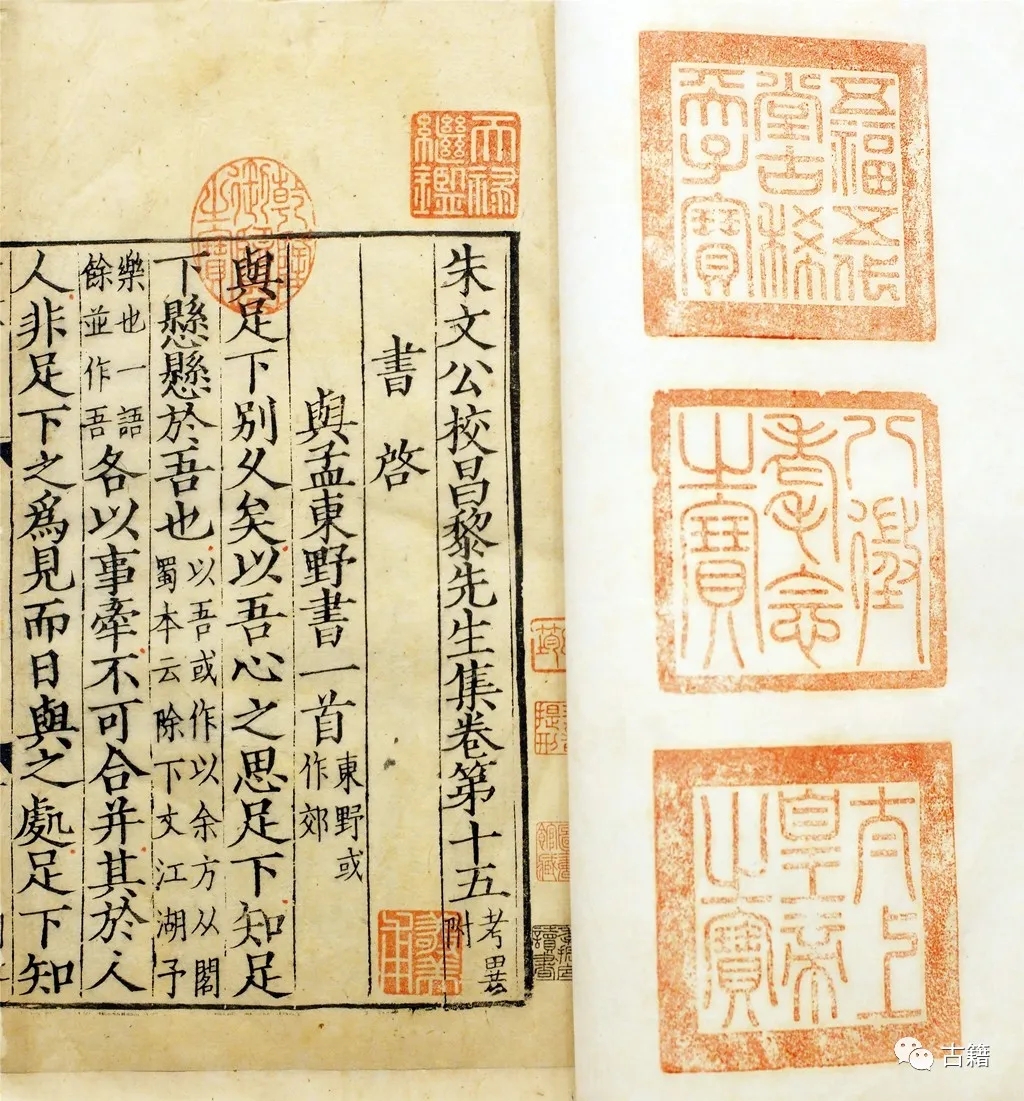 五福五代
堂古稀
天子寶
八徵
耄念
之寶
太上
皇帝
之寶
天祿
繼鑑
乾隆
御覽
之寶
朱文公校昌黎先生集卷第十五 考異
附
書啓
與孟東野書一首 東野或
作郊
與足下別久矣以吾心之思足下知足
下懸懸於吾也 以吾或作以余方从閣
蜀本云除下文江湖予
樂也一語
餘並作吾 各以事牽不可合并其於人
人非足下之爲見而日與之處足下知
古籍